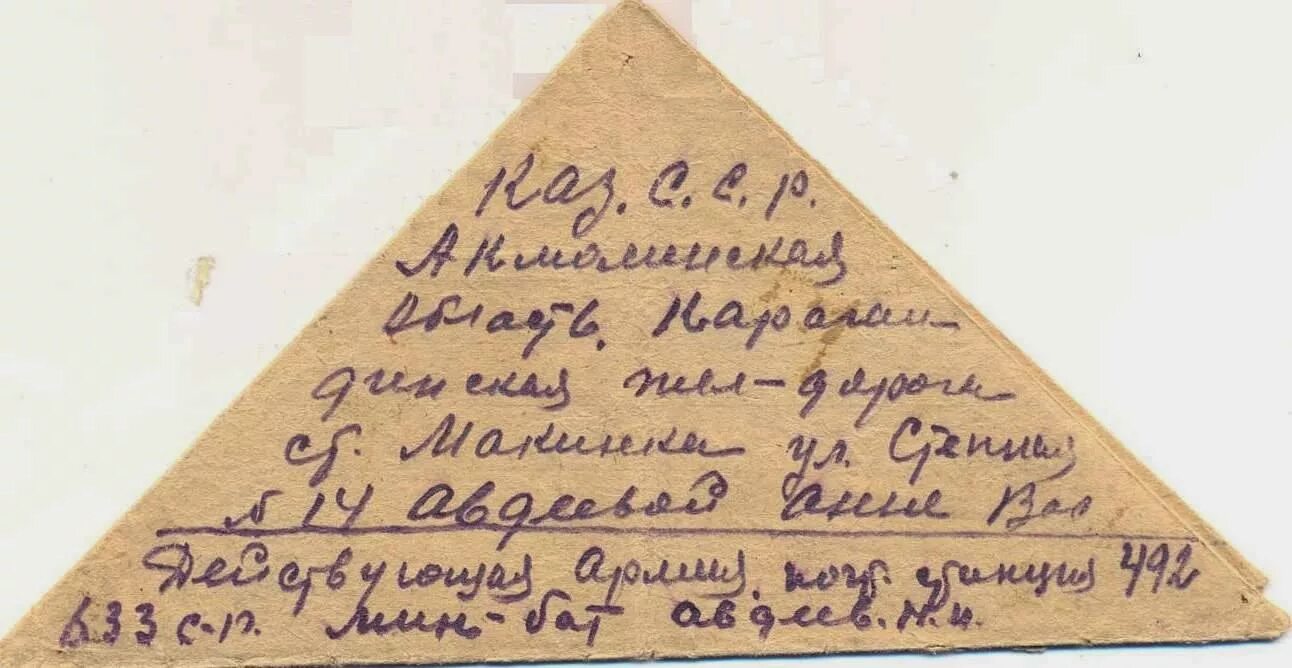 Каз. С. С. р.
Акмолинская
Область, Караган-
динская жел-дорога
ст. Макинка ул. Степная
№ 14 Авдеевой Анне Вас
Действующая Армия, почт. станция 492
633 с-п. мин-бат Авдеев. Н. И.